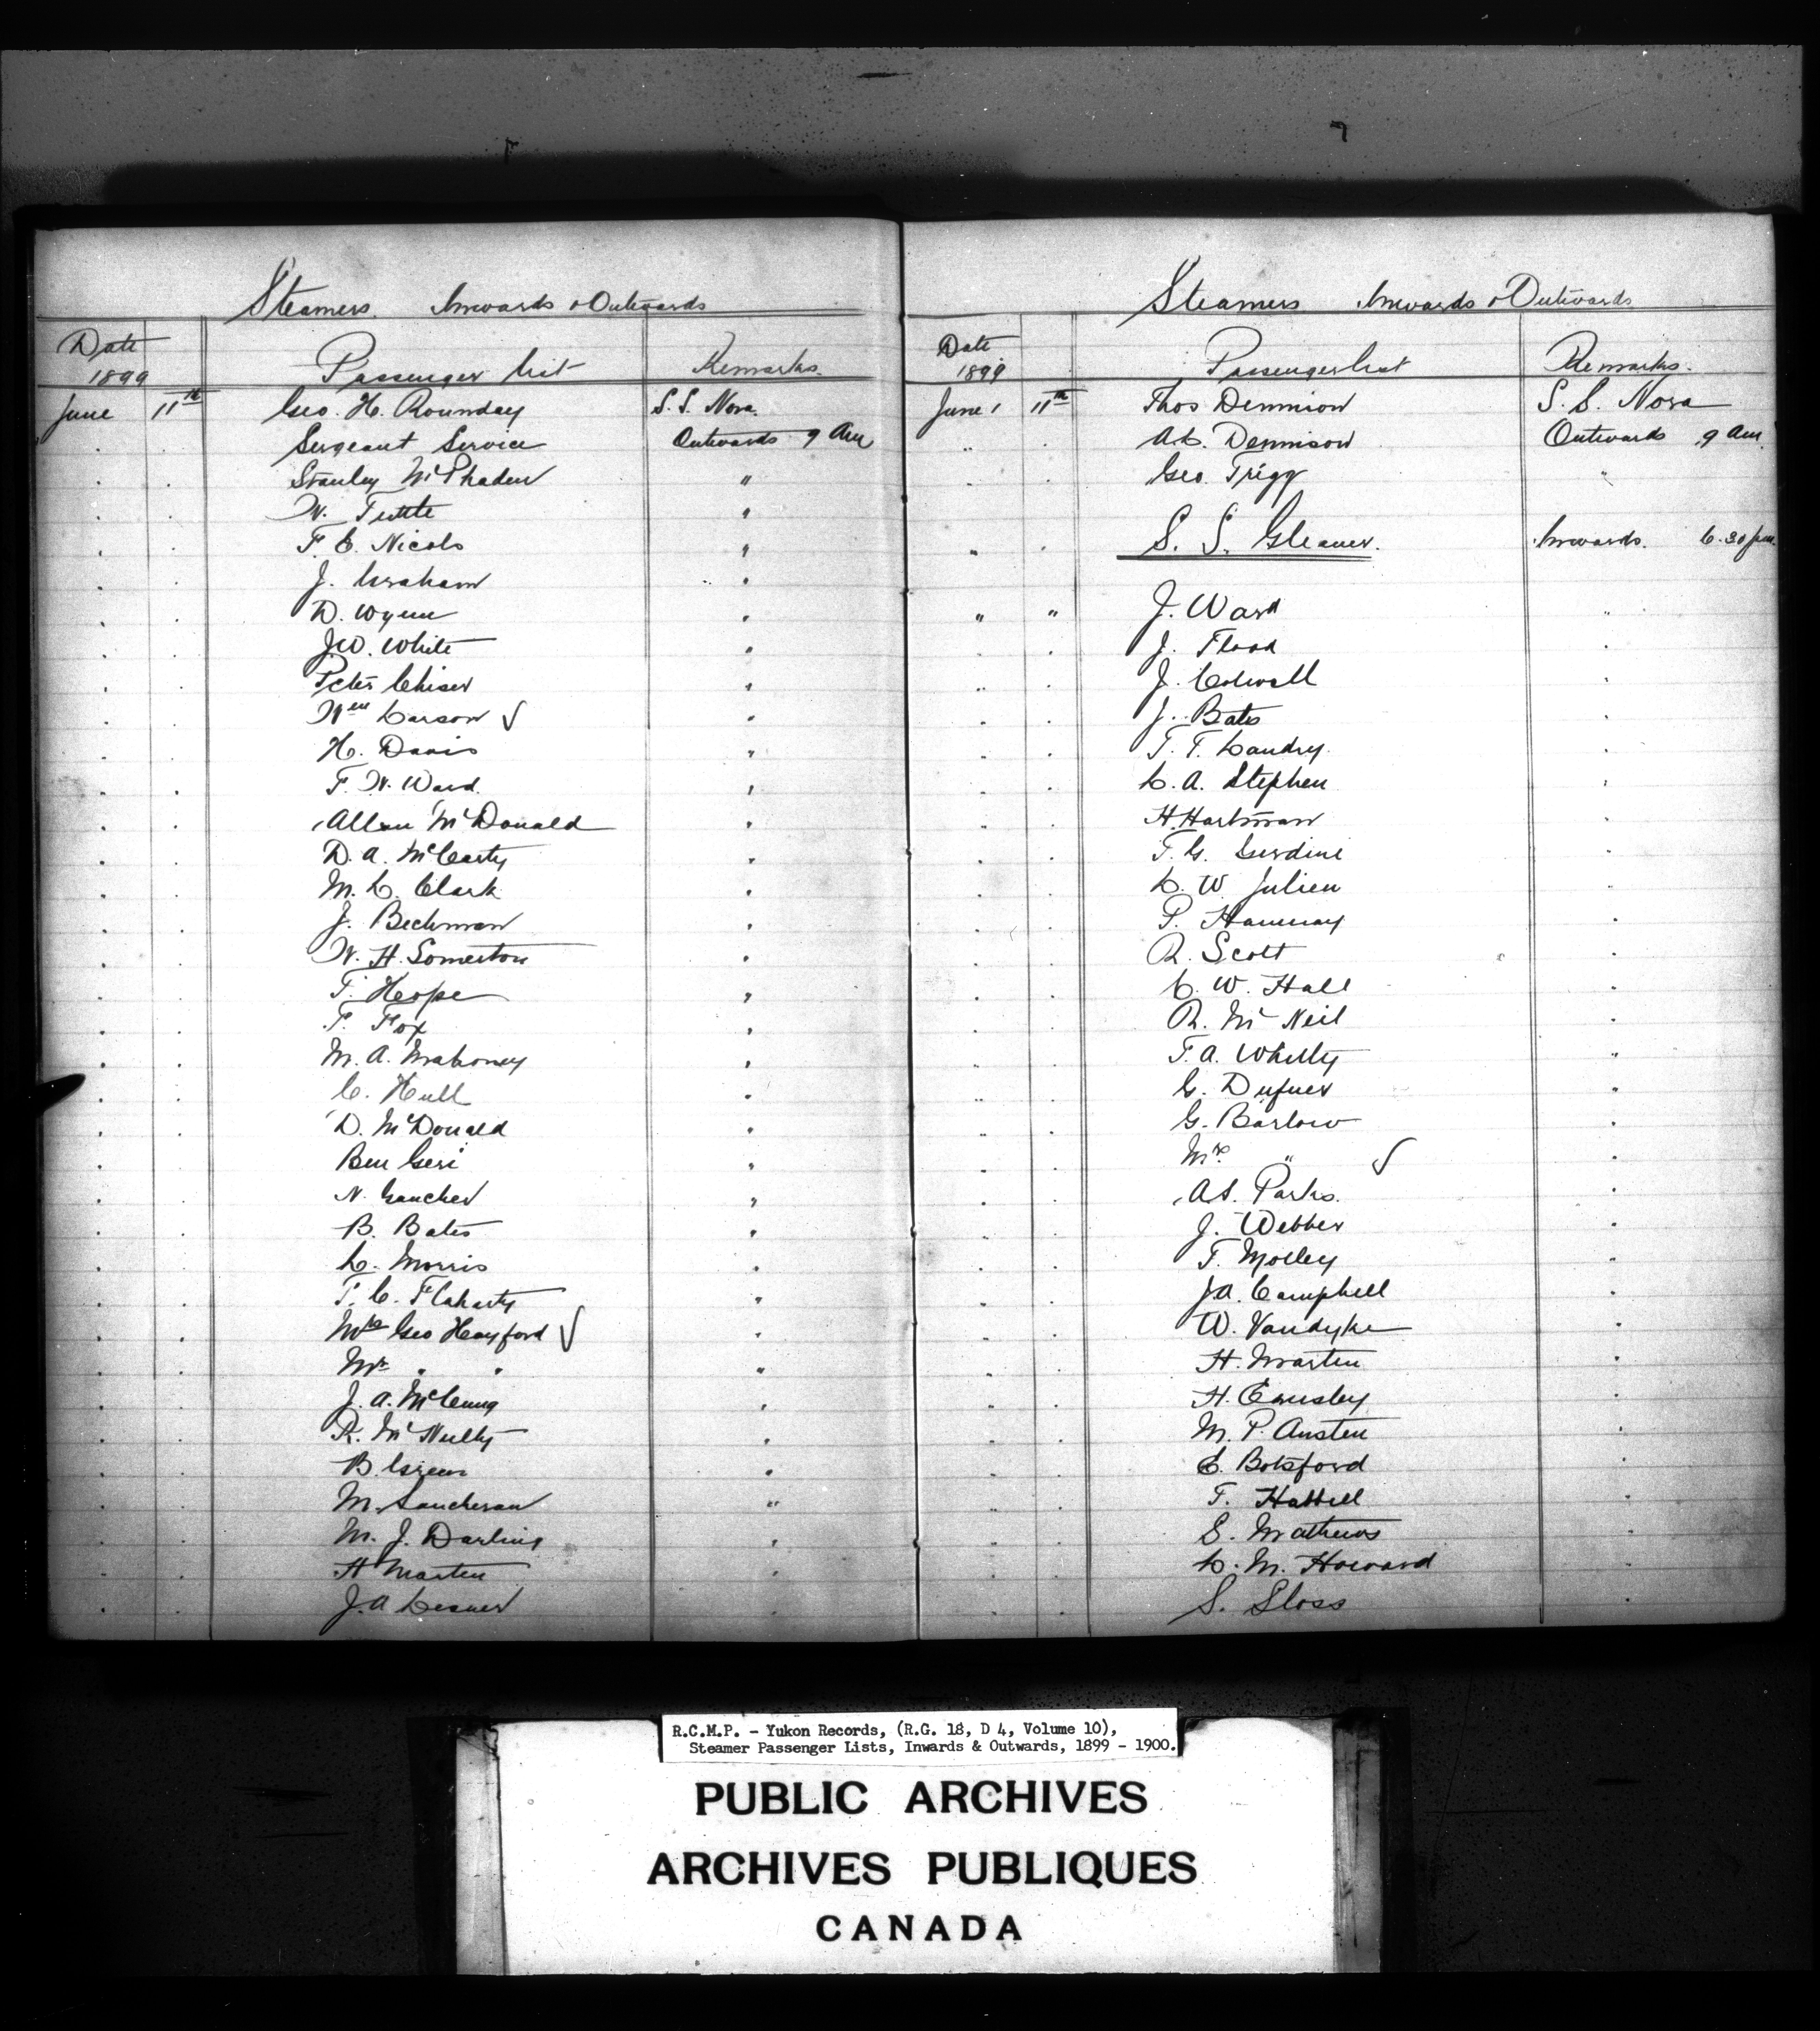 Steamers. Inwards & Outwards
Date 1899 Passenger List Remarks.
June 11th Geo. H. Rounday S.S. Nora.
Sergeant Service Outwards 9 Am
Stanley McPhaden "
W. Tuttle "
F. C. Nicols "
J. Graham "
D. Wynn "
J.W. White "
Peter Chiser "
Wm Carson ✓ "
H. Davis "
F. W. Ward. "
Allan McDonald "
D. A. McCarty "
M. C. Clark "
J. Beckman "
W. H. Somerton "
T. Hope "
T. Fox "
M. A. Mahoney "
C. Hull "
D. McDonald "
Ben Geri "
N. Gaucher "
B. Bates "
C. Morris "
T. C. Flaharty "
Mrs Geo Hayford ✓ "
Mr " " "
J. A. McClung "
R. McNulty "
B. Green "
M. "
M. J. Darling "
H Marten "
J. A "
Steamers Inwards & Outwards
Date 1899 Passenger List Remarks.
June 11th Thos Dennison S. S. Nora
" " Dennison Outwards 9 Am
Geo. Trigg "
" " S. S. Gleaner. Inwards. 6.30 pm.
" " J. Ward "
J. Flood "
J. Colwell "
J. Bates "
T. F. Landry "
C. A. Stephen "
H. Hartman "
T. G. Gerdine "
C. W. Julien "
P. Hannay "
R. Scott "
C. W. Hall "
R. McNeil "
T. A. Whitty "
G. Dufner "
G. Barlow "
Mrs " ✓ "
A.S. Parks. "
J. Webber "
F. Molley "
J.A. Campbell "
W. Vandyke "
H. Marten "
H. Emsley "
M. P. Austen "
E. Botsford "
T. Hattell "
S. Mathews "
C. M. Howard "
S. Sloss "
R.C.M.P. - Yukon Records, (R.G. 18, D 4, Volume 10),
Steamer Passenger Lists, Inwards & Outwards, 1899 - 1900.
PUBLIC ARCHIVES
ARCHIVES PUBLIQUES
CANADA